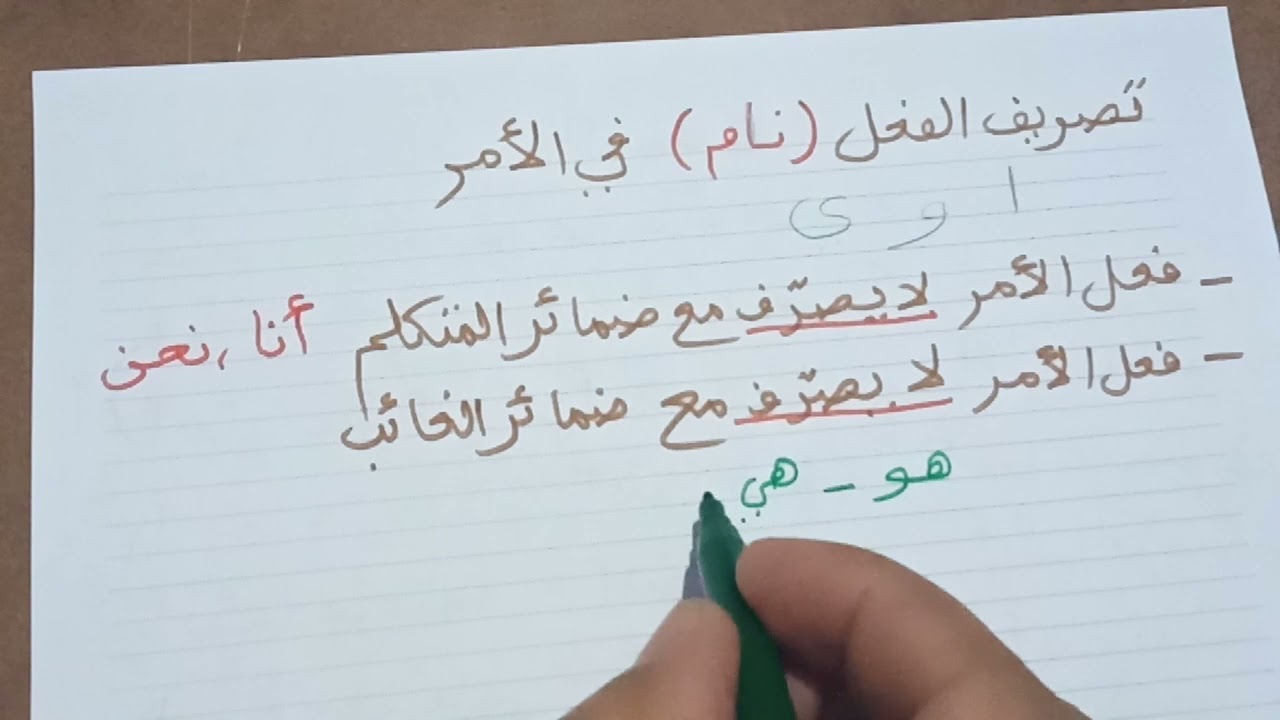 تصريف الفعل (نام) في الأمر
ا و ى
- فعل الأمر لا يصرّف مع ضمائر المتكلم أنا، نحن
- فعل الأمر لا يصرّف مع ضمائر الغائب
هو - هي